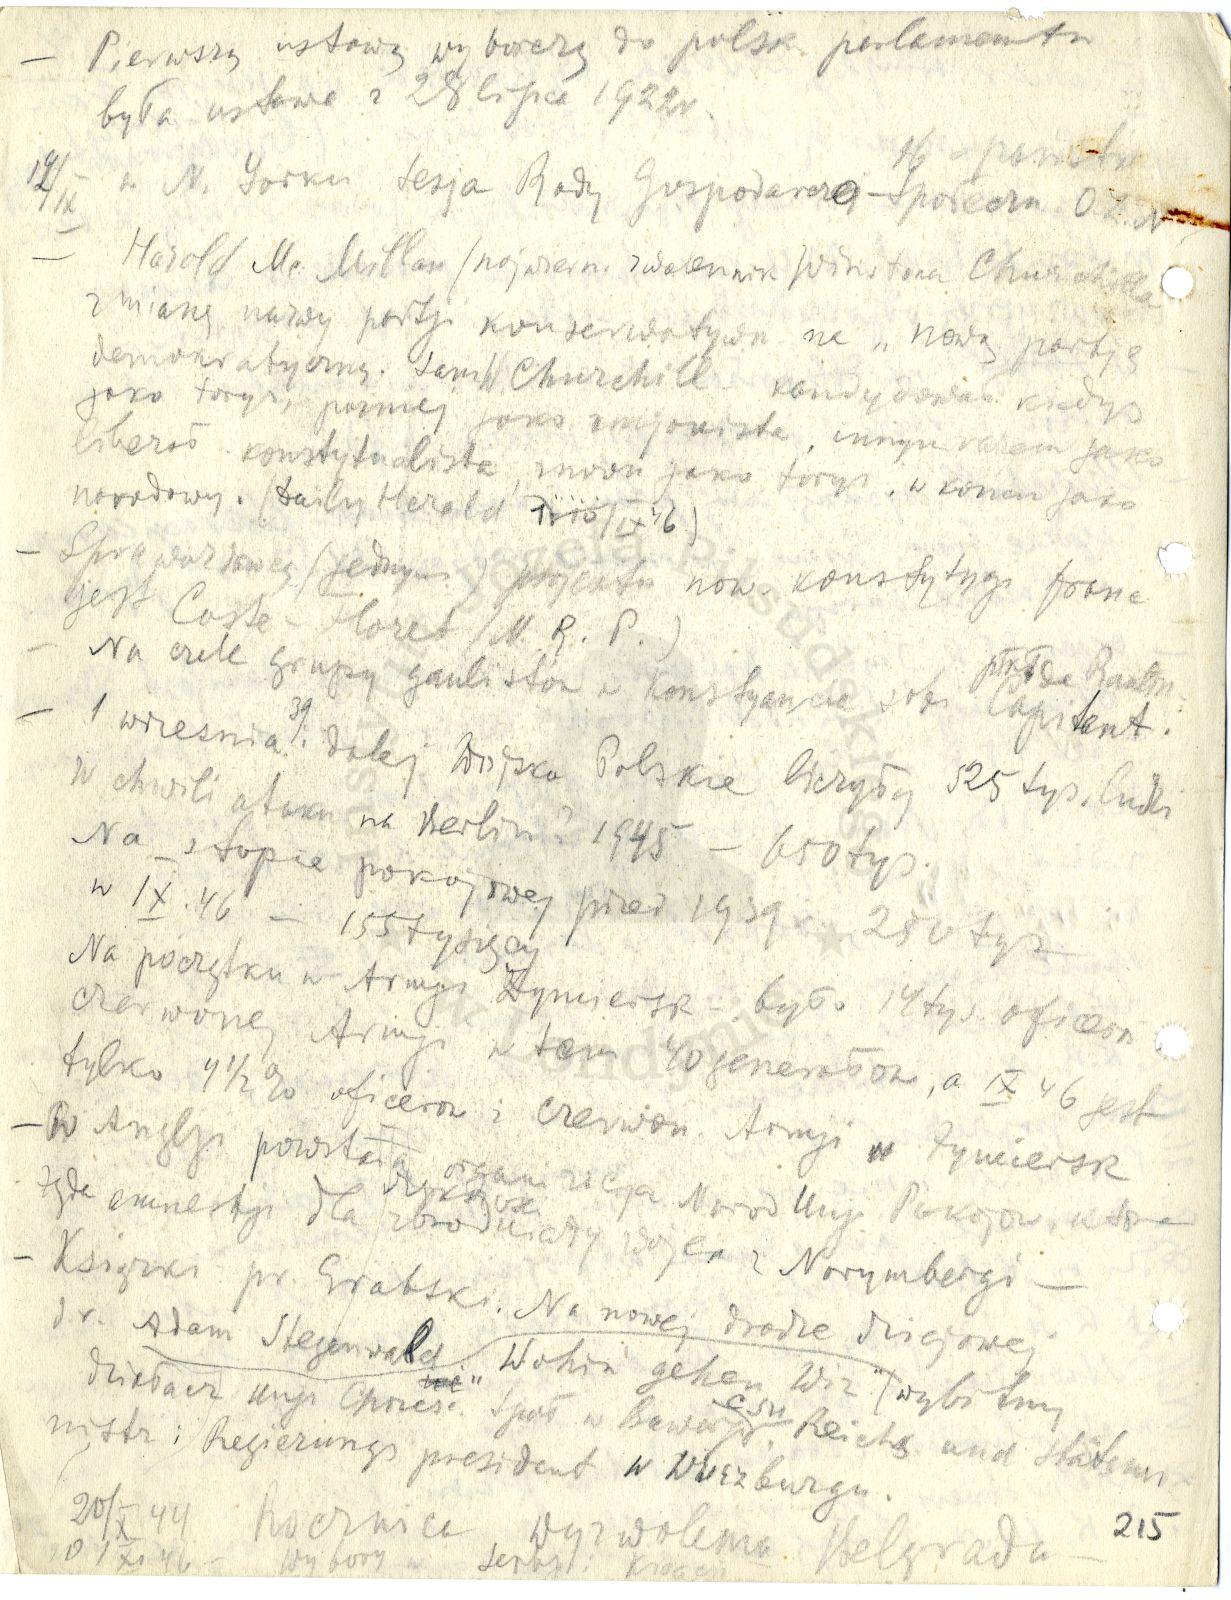 — Pierwszą ustawą wyborczą do polsk. parlamentu
była ustawa z 28 lipca 1922 r.
19/IX w N. Yorku sesja Rady Gospodarczo-Społeczn. O.Z.N
— Harold Mc. Millan (najwiern. zwolennik) Winstona Churchilla
zmianę nazwy partji konserwatywn na „nową partję
demokratyczną. Sam W Churchill kandydował kiedyś
jako torys, później jako unjonista, innym razem jako
liberał konstytucjalista, znowu jako torys. w koncu jako
narodowy. (Daily Herald /IX 46)
— Sprawozdawcą (jednym) projektu now. konstytycji franc
jest Coste-Floret (M. R. P.)
— Na czele grupy gaulistów w Konstytuancie stoi
Capitant.
— 1 wrzesnia 39. Wojsko Polskie liczyło 525 tys. ludzi
W chwili ataku na Berlin 1945 — 650 tys.
Na stopie pokojowej przed 1939 r. 250 tys
w IX. 46 — 155 tysięcy
Na początku w Armji Żymiersk. było 14 tys. oficerów
czerwonej Armji w tem 40 generałów, a IX 46 jest
tylko 4 1/2 % oficerow z czerwon. Armji w Żymiersk
— W Anglji powstała organizacja Narod Unji Pokojow. która
żąda amnestji dla zbrodniarzy wojen z Norymbergi —
— Książki pr. Grabski. Na nowej drodze dziejowej
dr. Adam Stegerwald „Wohin gehen Wir" (wybitny
działacz Unji Chrześc. Społ w Bawarji CSU Reichs und Staatsmi
nistr i Regierungs president w Wurzburgu.
20/X 44 Rocznica wyzwolenia Belgradu —
XI 46 — Wybory w Serbji i
215